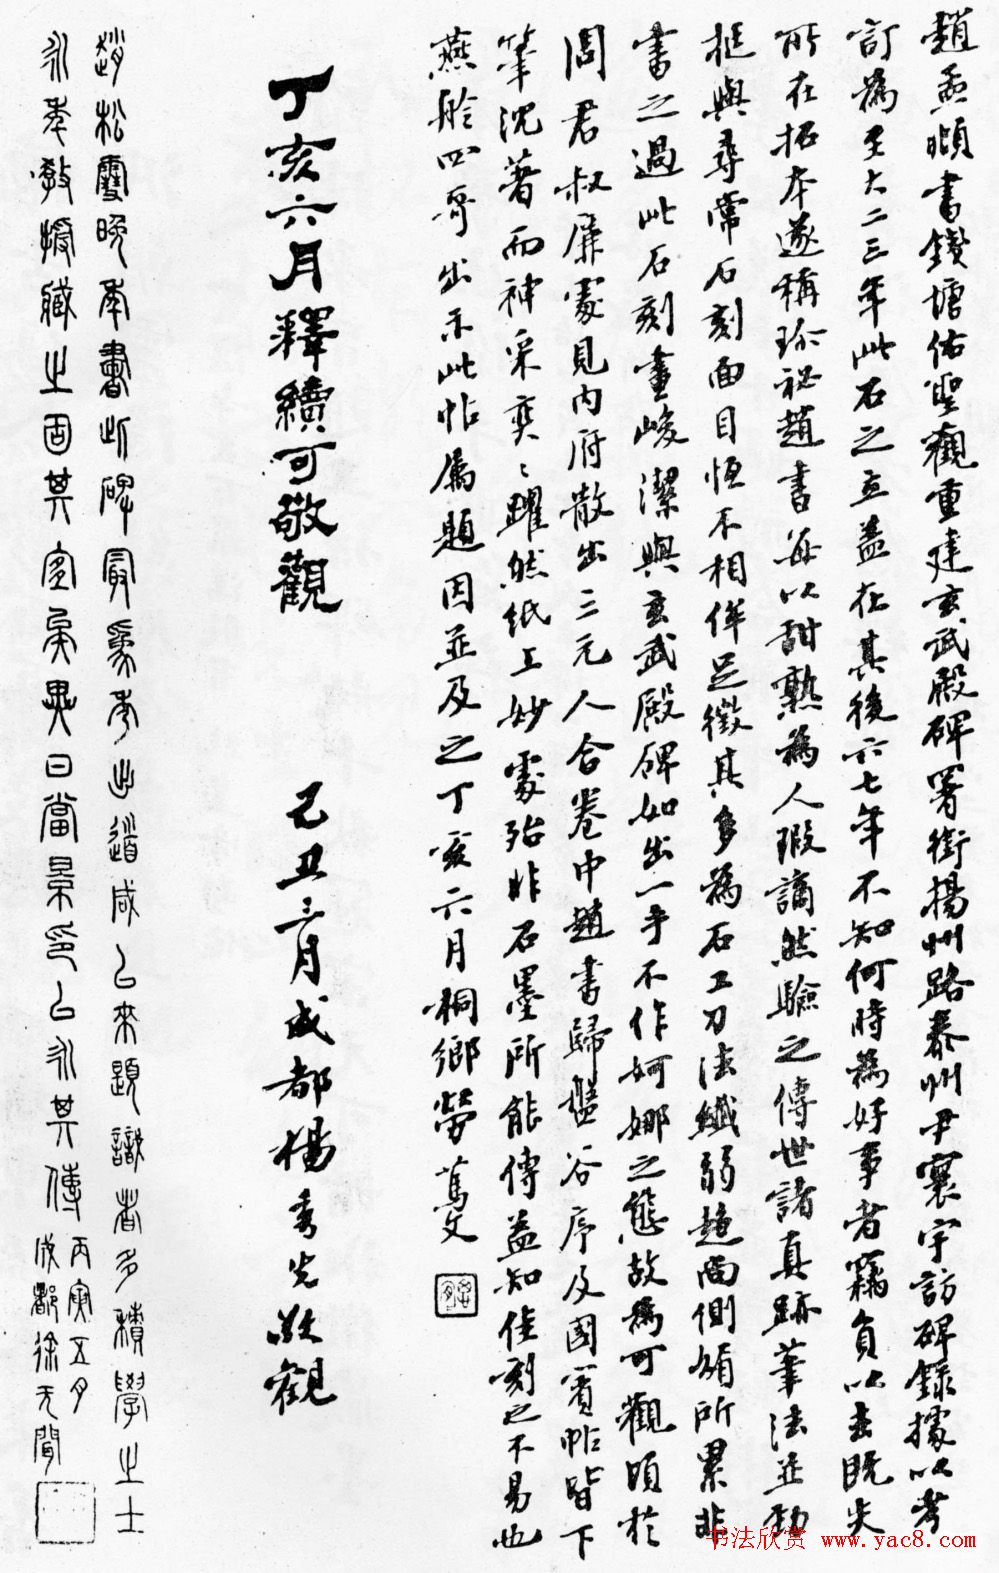 趙孟頫書錢塘佑聖觀重建玄武殿碑署銜揚州路泰州尹寰宇訪碑錄據以考
訂為至大二三年此石之立蓋在其後六七年不知何時為好事者竊負以去既失
所在拓本遂稱珍祕趙書每以甜熟為人瑕謫然驗之傳世諸真跡筆法並勁
挺與尋常石刻面目恒不相侔足徵其多為石工刀法纖弱趨向側媚所累非
書之過此石刻畫峻潔與玄武殿碑如出一手不作婀娜之態故為可觀頃於
周君叔廉處見內府散出三元人合卷中趙書歸盤谷序及國賓帖皆下
筆沈著而神采奕〻躍然紙上妙處殆非石墨所能傳益知佳刻之不易也
燕舲四哥出示此帖屬題因並及之丁亥六月桐鄉勞篤文
丁亥六月釋續可敬觀
己丑三月成都楊秀先敬觀
趙松雪晚年書此碑最為秀出道咸以來題識者多積學之士
永年教授藏之固其宜矣異日當景印以永其傳
丙寅五月
成都徐无聞
书法欣赏 www.yac8.com